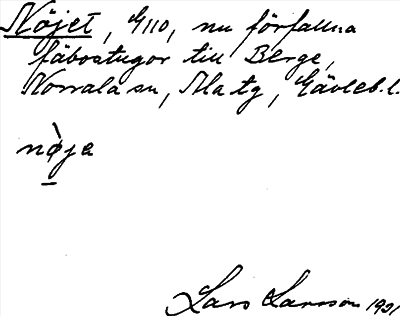 Nöjet, G110, nu förfallna
fäbostugor till Berge,
Norrala sn, Ala tg, Gävleb. l.
nøja
Lars Larsson 1931